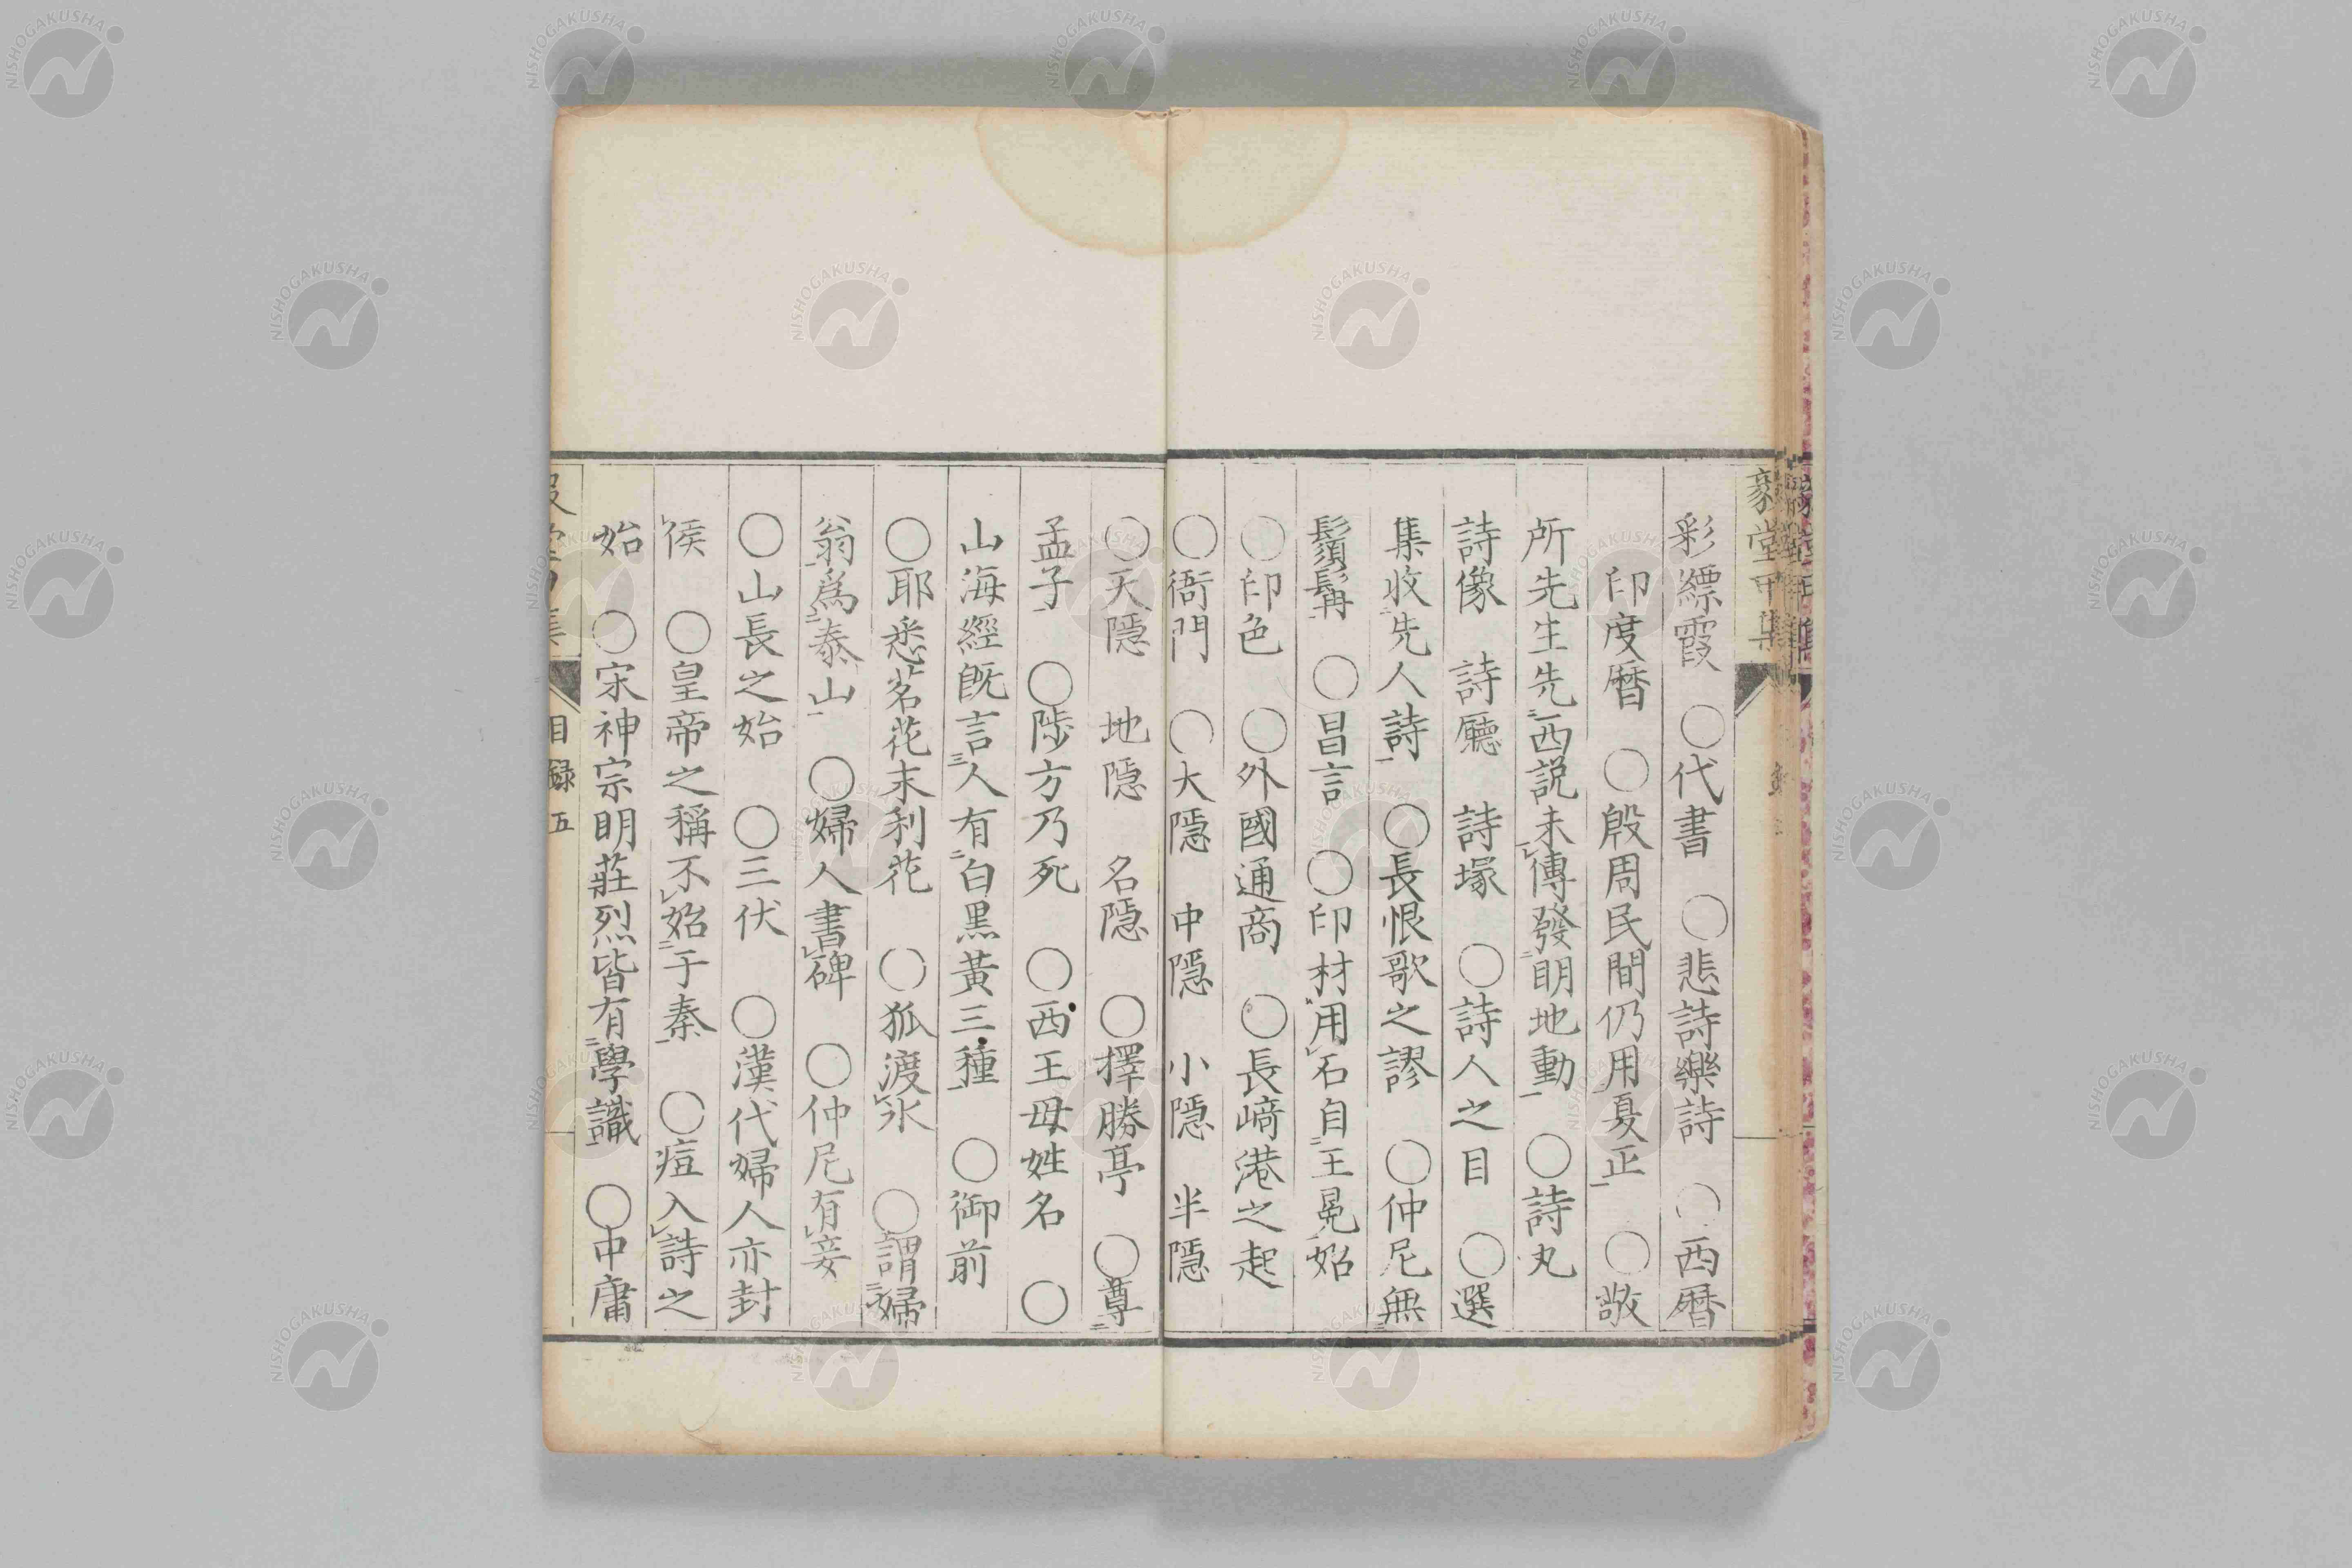 彩縹霞　〇代書　〇悲詩樂詩　〇西曆
印度曆　〇殷周民間仍用夏正　〇敬
所先生先西説未傳發明地動　〇詩丸
詩像　詩廳　詩塚　〇詩人之目　〇選
集收先人詩　〇長恨歌之謬　〇仲尼無
鬚髯　〇昌言　〇印材用石自王冕始
〇印色　〇外國通商　〇長﨑港之起
〇衙門　〇大隱　中隱　小隱　半隱
〇天隱　地隱　名隱　〇擇勝亭　〇尊
孟子　〇陟方乃死　〇西王母姓名　〇
山海經既言人有白黑黃三種　〇御前
〇耶悉茗花末利花　〇狐渡氷　〇謂婦
翁爲泰山　〇婦人書碑　〇仲尼有妾
〇山長之始　〇三伏　〇漢代婦人亦封
侯　〇皇帝之稱不始于秦　〇痘入詩之
始　〇宋神宗明莊烈皆有學識　〇中庸
目録　五
NISHOGAKUSHA